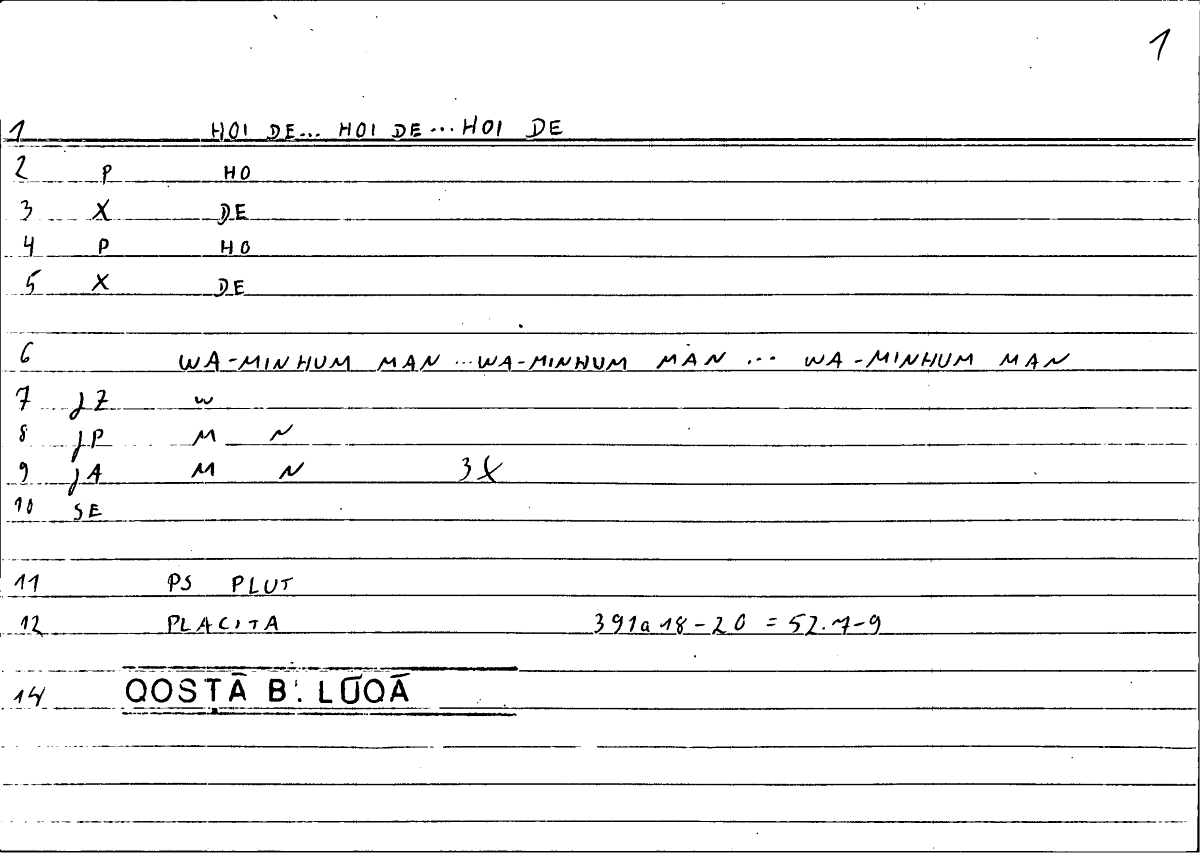 1
1 HOI DE... HOI DE... HOI DE
2 P HO
3 X DE
4 P HO
5 X DE
6 WA-MINHUM MAN ... WA-MINHUM MAN ... WA-MINHUM MAN
7 JZ W
8 JP M N
9 JA M N 3X
10 SE
11 PS PLUT
12 PLACITA 391a18-20 = 52.7-9
14 QOSṬĀ B. LŪQĀ